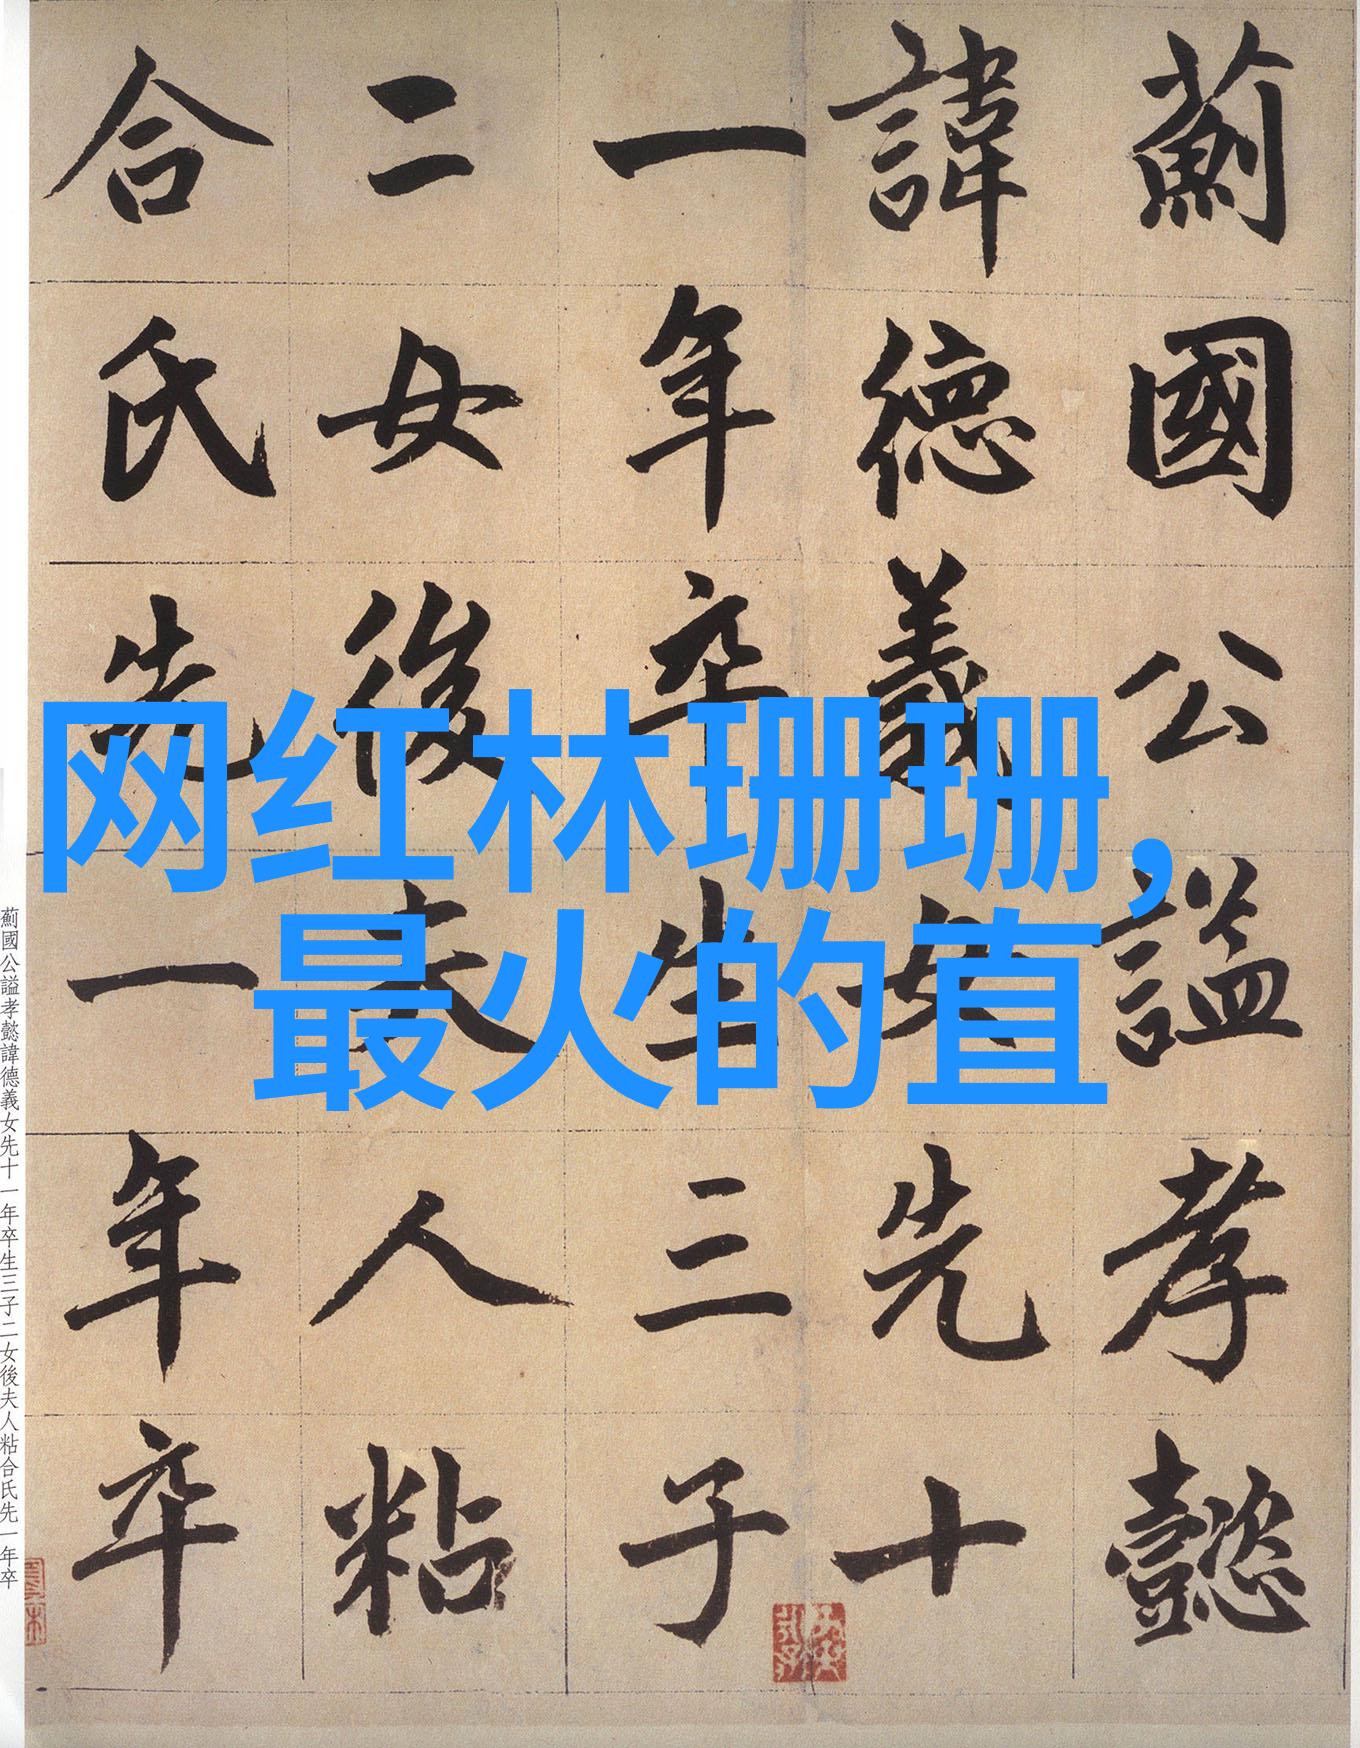 薊國公謚孝懿
諱德義女先十
一年卒生三子
二女後夫人粘
合氏先一年卒
网红林珊珊,
最火的直
薊國公謚孝懿諱德義女先十一年卒生三子二女後夫人粘合氏先一年卒